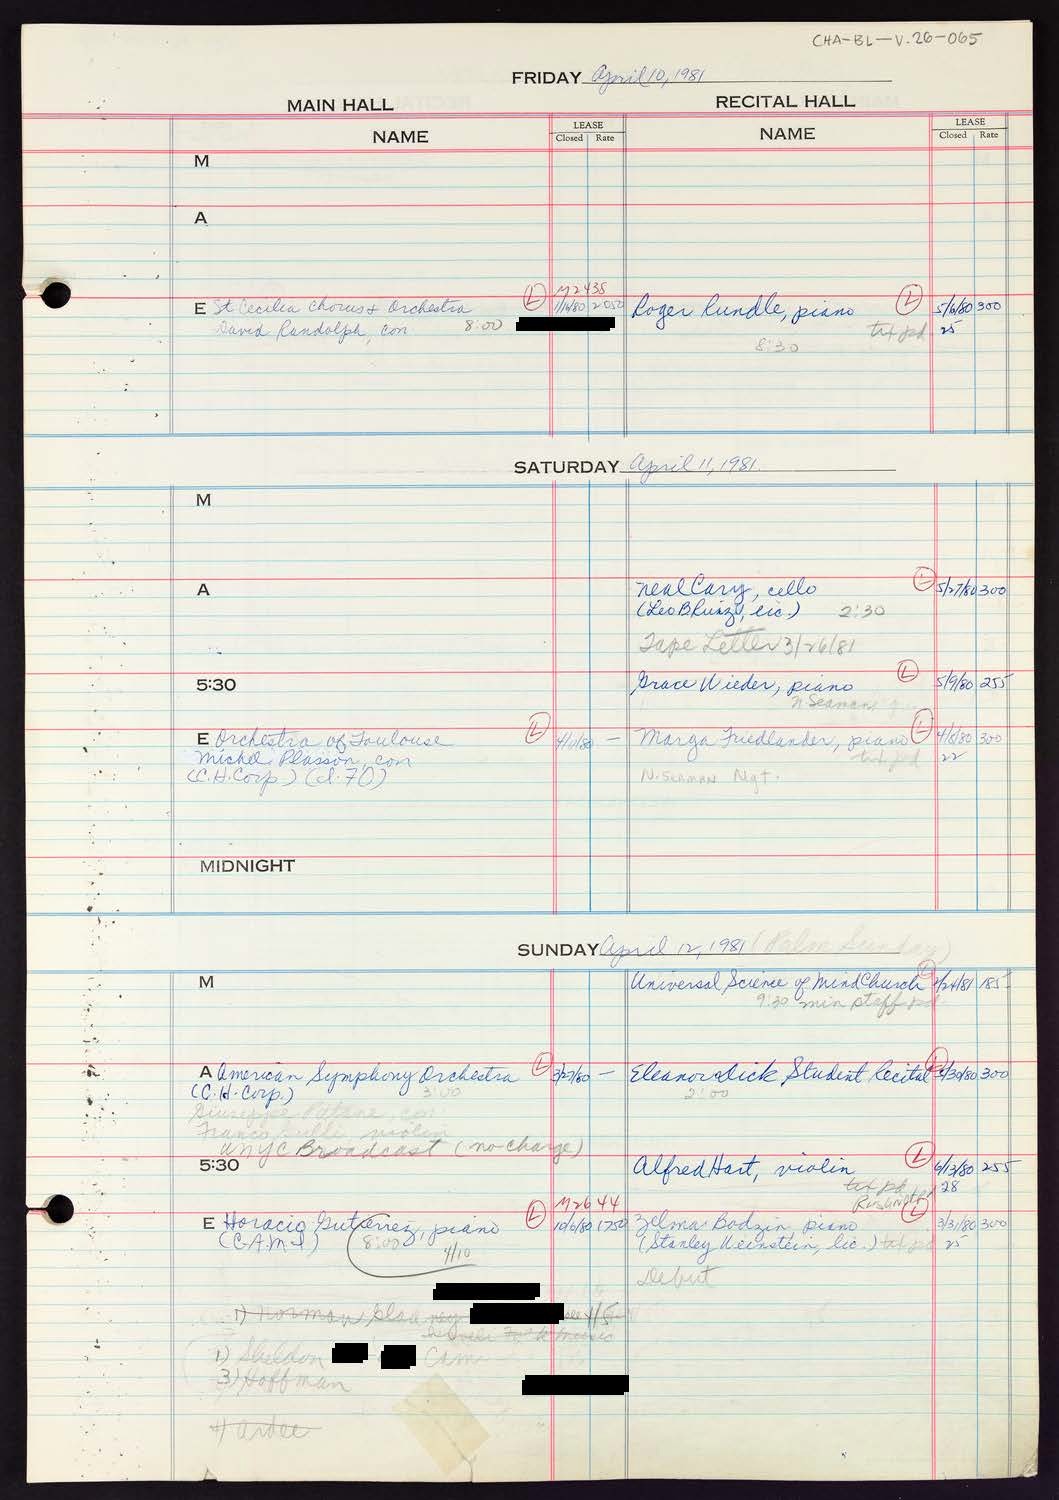 CHA-BL-V.26-065
FRIDAY April 10, 1981
MAIN HALL RECITAL HALL
NAME LEASE Closed Rate NAME LEASE Closed Rate
M
A
M2435
E St Cecilia Chorus & Orchestra L 1/16/80 2050 Roger Rundle, piano L 5/6/80 300
David Randolph, con 8:00 txt pd 25
8:30
SATURDAY April 11, 1981
M
A Neal Cary, cello L 5/27/80 300
2:30
Tape Letter 3/26/81
5:30 Grace Wieder, piano L 5/9/80 255
N Seaman
E Orchestra of Toulouse L 4/1/80 — Marga Friedlander, piano L 4/8/80 300
Michel Plasson, con txt pd 22
(C.H. Corp.) (cl. 70) N. SEAMAN Mgt.
MIDNIGHT
SUNDAY April 12, 1981 (Palm Sunday)
M Universal Science of Mind Church L /24/81 185
9:30 min staff pd
A American Symphony Orchestra L 3/27/80 — Eleanor Dick Student Recital L /30/80 300
(C.H. Corp.) 3:00 2:00
Giuseppe Patane, con
Franco Gulli, violin
WNYC Broadcast (no charge)
5:30 Alfred Hart, violin L 6/13/80 255
txt pd 28
M2644
E Horacio Gutierrez, piano L 10/6/80 1750 Zelma Bodzin piano L 3/31/80 300
(C.A.M.I.) 8:00 4/10 (Stanley Weinstein, lic.) txt pd 25
Debut
1) Norman
1) Sheldon Cami
3) Hoffman
4) Ardee